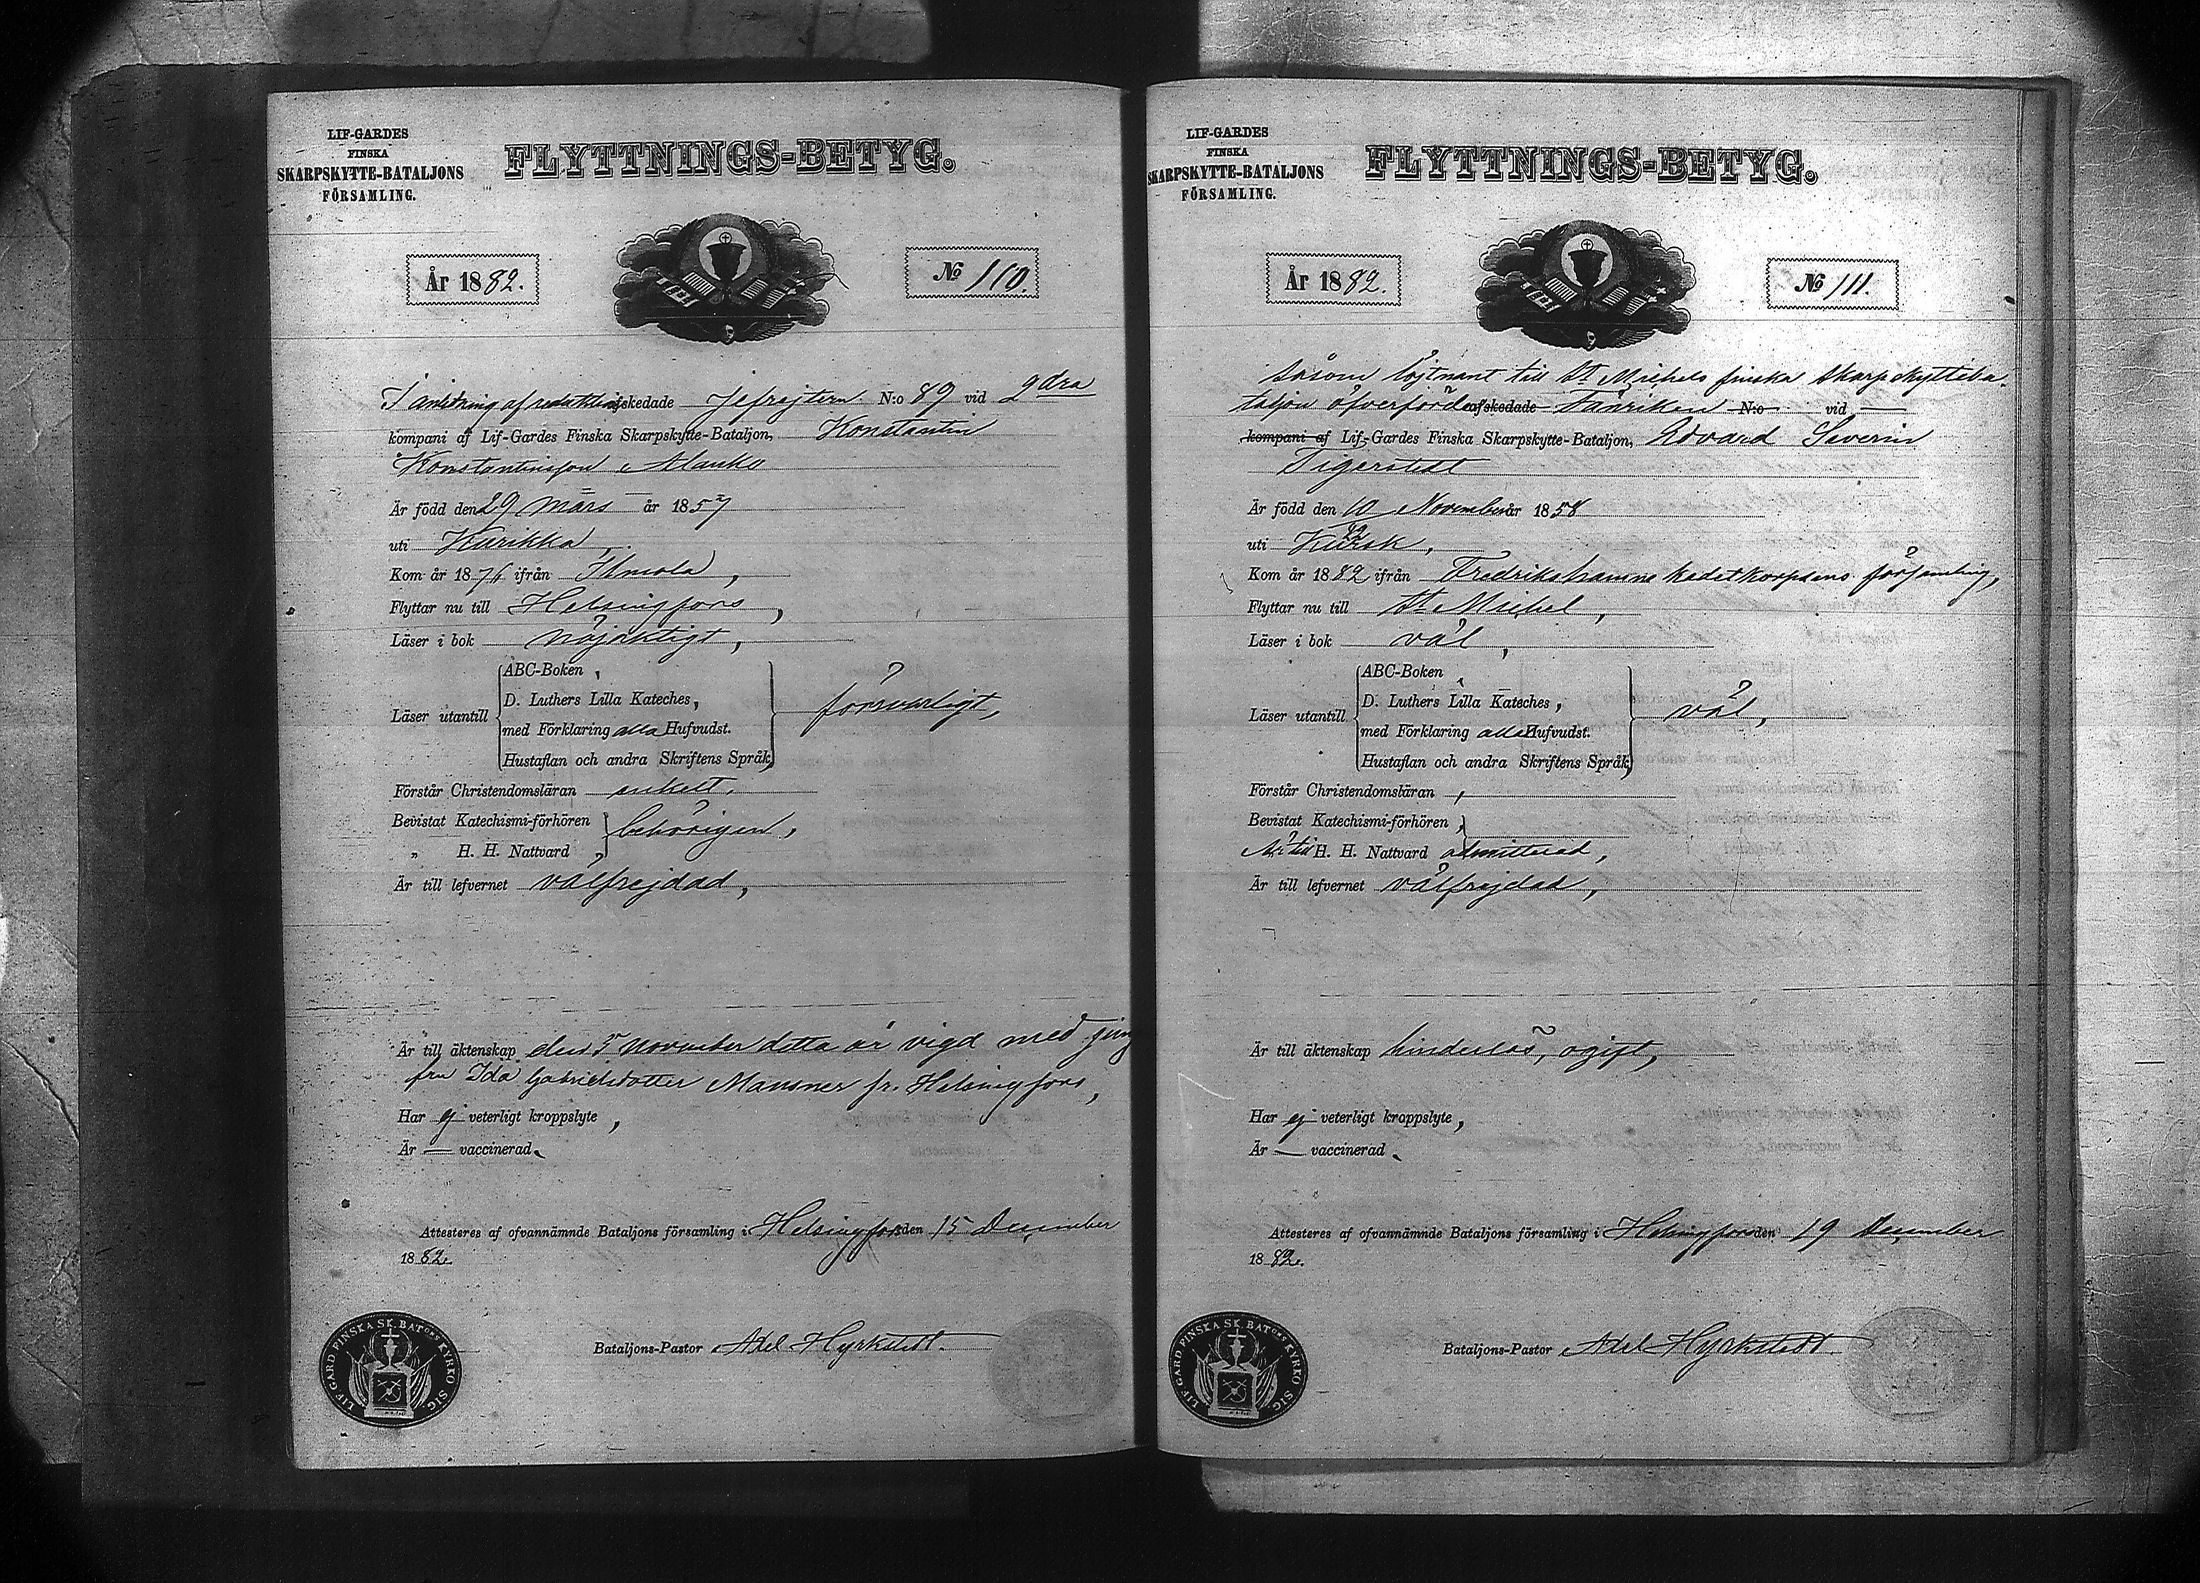 LIF-GARDES
FINSKA
SKARPSKYTTE-BATALJONS
FÖRSAMLING.
FLYTTNINGS-BETYG.
År 1882.
No 110.
I anledning af reduktion afskedade Jefrejtern N:o 89 vid 2dra
kompani af Lif-Gardes Finska Skarpskytte-Bataljon, Konstantin
Konstantinsson
Är född den 29 mars år 1857
uti Kurikka,
Kom år 1876 ifrån Ilmola,
Flyttar nu till Helsingfors,
Läser i bok nöjaktigt,
Läser utantill
ABC-Boken,
D. Luthers Lilla Kateches,
med Förklaring alla Hufvudst.
Hustaflan och andra Skriftens Språk,
försvarligt,
Förstår Christendomsläran enkelt,
Bevistat Katechismi-förhören
" H. H. Nattvard
behörigen,
Är till lefvernet välfrejdad,
Är till äktenskap den 5 November detta år vigd med jung
frun Ida Gabrielsdotter Mansner fr. Helsingfors,
Har ej veterligt kroppslyte,
Är — vaccinerad.
Attesteres af ofvannämnde Bataljons församling i Helsingfors den 15 December
1882.
Bataljons-Pastor Axel Hyrkstedt.
LIF GARD FINSKA SK. BATONS KYRKO SIG.
LIF-GARDES
FINSKA
SKARPSKYTTE-BATALJONS
FÖRSAMLING.
FLYTTNINGS-BETYG.
År 1882.
No 111.
Såsom löjtnant till St Michels finska skarpskytteba-
taljon öfverförde afskedade Fänriken N:o vid —
kompani af Lif-Gardes Finska Skarpskytte-Bataljon, Edvard Severin
Tigerstedt
Är född den 10 November år 1858
uti Kursk,
Kom år 1882 ifrån Fredrikshamns kadettkorpsens församling,
Flyttar nu till St Michel,
Läser i bok väl,
Läser utantill
ABC-Boken
D. Luthers Lilla Kateches,
med Förklaring alla Hufvudst.
Hustaflan och andra Skriftens Språk,
väl,
Förstår Christendomsläran,
Bevistat Katechismi-förhören,
Är till H. H. Nattvard admitterad,
Är till lefvernet välfrejdad,
Är till äktenskap hinderlös, ogift,
Har ej veterligt kroppslyte,
Är — vaccinerad.
Attesteres af ofvannämnde Bataljons församling i Helsingfors den 19 December
1882.
Bataljons-Pastor Axel Hyrkstedt.
LIF GARD FINSKA SK. BATONS KYRKO SIG.